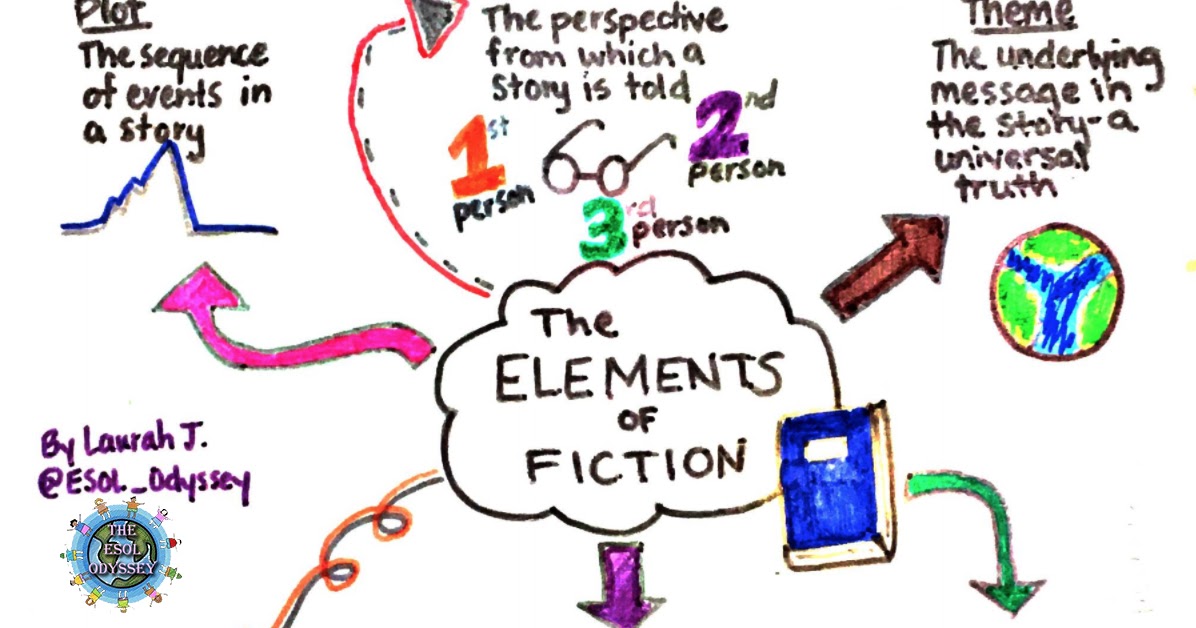 Plot
The sequence
of events in
a story
The perspective
from which a
story is told
1st
person
2nd
person
3rd
person
Theme
The underlying
message in
the story-a
universal
truth
The
ELEMENTS
OF
FICTION
By Laurah J.
@ESOL_Odyssey
THE
ESOL
ODYSSEY